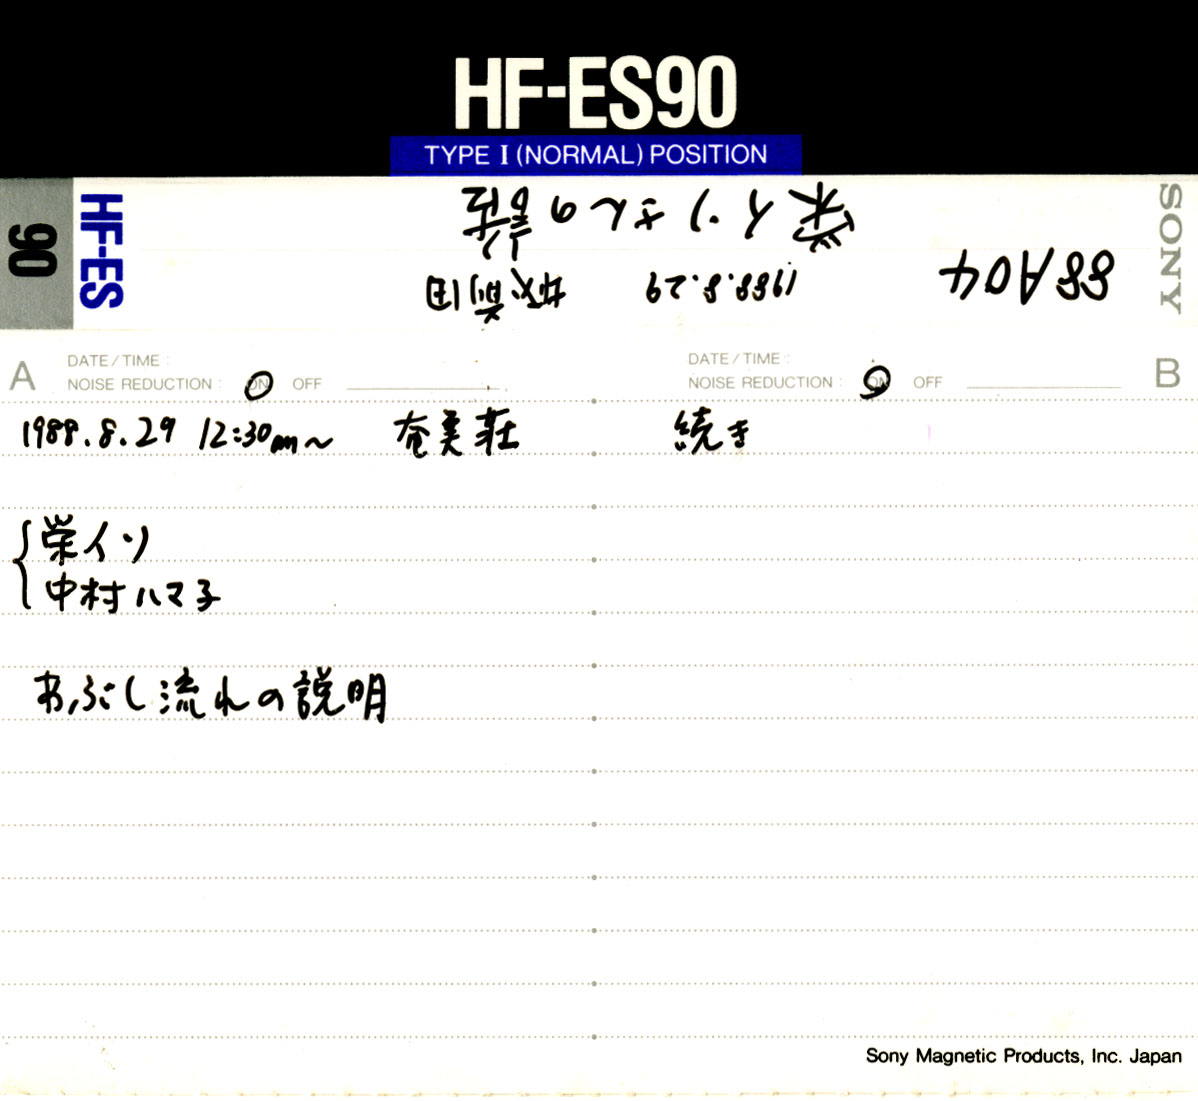 HF-ES90
TYPE I (NORMAL) POSITION
90
HF-ES
SONY
栄イソさんの話
88A04 1988.8.29
A DATE/TIME:
NOISE REDUCTION: ON OFF
DATE/TIME: B
NOISE REDUCTION: ON OFF
1988.8.29 12:30am~ 奄美荘 続き
栄イソ
中村ハマ子
おぶし流れの説明
Sony Magnetic Products, Inc. Japan